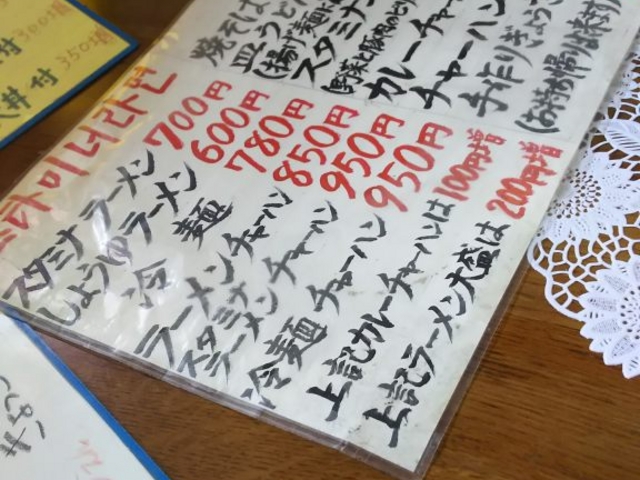 付 300増
丼付 350増
타미너라면
スタミナラーメン 700円
しょうゆラーメン 600円
冷麺 780円
ラーメンチャーハン 850円
スタミナラーメンチャーハン 950円
冷麺チャーハン 950円
上記カレーチャーハンは 100円増
上記ラーメン大盛は 200円増
焼そば
皿うどん
(揚げ麺に
スタミナ
カレーチャー
チャーハン
手作りぎょう
(お持ち帰りは